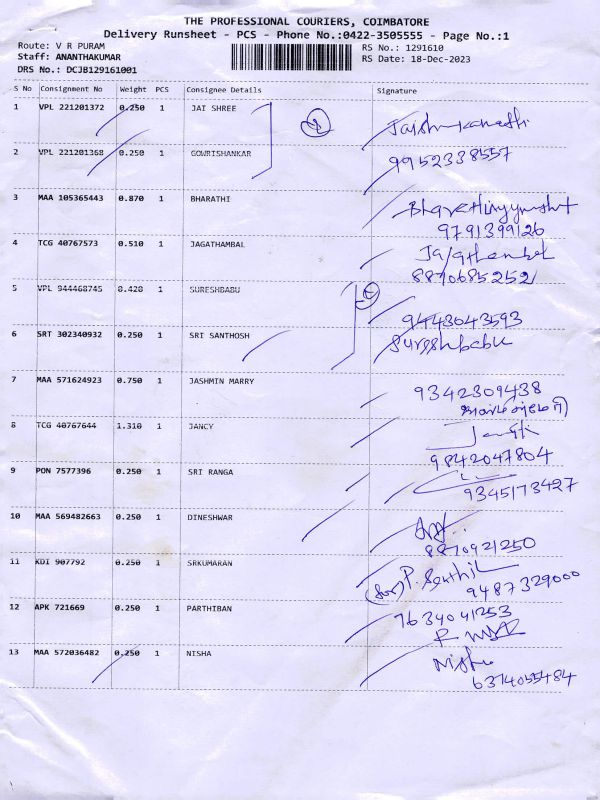 THE PROFESSIONAL COURIERS, COIMBATORE
Delivery Runsheet - PCS - Phone No.:0422-3505555 - Page No.:1
Route: V R PURAM
RS No.: 1291610
Staff: ANANTHAKUMAR
RS Date: 18-Dec-2023
DRS No.: DCJB129161001
S No Consignment No Weight PCS Consignee Details Signature
1 VPL 221201372 0.250 1 JAI SHREE
2 VPL 221201368 0.250 1 GOWRISHANKAR 9952338557
3 MAA 105365443 0.870 1 BHARATHI
9791399126
4 TCG 40767573 0.510 1 JAGATHAMBAL Jagathambal
8870685252
5 VPL 944468745 8.428 1 SURESHBABU
9443043593
6 SRT 302340932 0.250 1 SRI SANTHOSH Sureshbabu
7 MAA 571624923 0.750 1 JASHMIN MARRY 9342309438
8 TCG 40767644 1.310 1 JANCY
9842047804
9 PON 7577396 0.250 1 SRI RANGA
9345173427
10 MAA 569482663 0.250 1 DINESHWAR
8870921250
11 KDI 907792 0.250 1 SRKUMARAN P. Senthil
9487329000
12 APK 721669 0.250 1 PARTHIBAN 7634041253
13 MAA 572036482 0.250 1 NISHA Nisha
6374055484